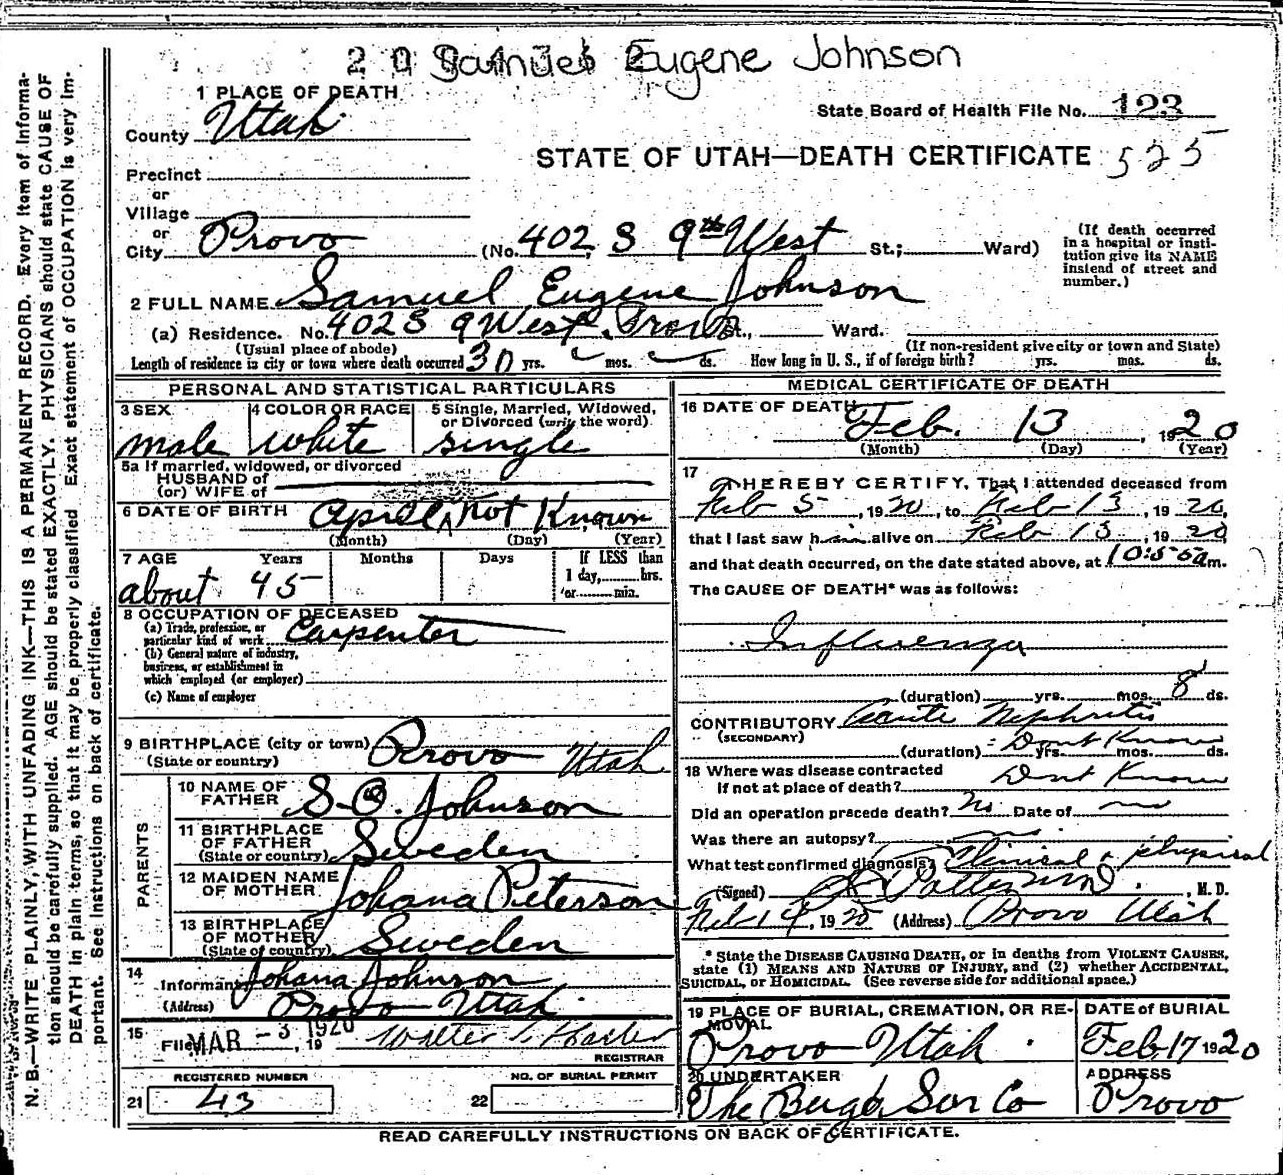 Samuel Eugene Johnson
1 PLACE OF DEATH
County Utah
State Board of Health File No. 123
STATE OF UTAH—DEATH CERTIFICATE 525
Precinct
or
Village
or
City Provo (No. 402 S 9th West St.; Ward)
(If death occurred in a hospital or insti-
tution give its NAME
instead of street and
number.)
2 FULL NAME Samuel Eugene Johnson
(a) Residence. No. 402 S 9 West. Provo St., Ward.
(Usual place of abode) (If non-resident give city or town and State)
Length of residence in city or town where death occurred 30 yrs. mos. ds. How long in U. S., if of foreign birth? yrs. mos. ds.
PERSONAL AND STATISTICAL PARTICULARS
3 SEX male
4 COLOR OR RACE white
5 Single, Married, Widowed,
or Divorced (write the word)
single
5a If married, widowed, or divorced
HUSBAND of
(or) WIFE of
6 DATE OF BIRTH April, not Known
(Month) (Day) (Year)
7 AGE Years Months Days If LESS than
1 day, hrs.
or min.
about 45
8 OCCUPATION OF DECEASED
(a) Trade, profession, or
particular kind of work Carpenter
(b) General nature of industry,
business, or establishment in
which employed (or employer)
(c) Name of employer
9 BIRTHPLACE (city or town) Provo Utah
(State or country)
PARENTS
10 NAME OF
FATHER S. O. Johnson
11 BIRTHPLACE
OF FATHER
(State or country) Sweden
12 MAIDEN NAME
OF MOTHER Johana Peterson
13 BIRTHPLACE
OF MOTHER
(State of country) Sweden
14
Informant Johana Johnson
(Address) Provo Utah.
15
Filed MAR -3 1920, 19 Walter
REGISTRAR
REGISTERED NUMBER
21 43
NO. OF BURIAL PERMIT
22
MEDICAL CERTIFICATE OF DEATH
16 DATE OF DEATH Feb. 13, 1920
(Month) (Day) (Year)
17
I HEREBY CERTIFY, That I attended deceased from
Feb 5, 1920, to Feb 13, 1920,
that I last saw him alive on Feb 13, 1920
and that death occurred, on the date stated above, at 10:55 a m.
The CAUSE OF DEATH* was as follows:
Influenza
(duration) yrs. mos. 8 ds.
CONTRIBUTORY Acute Nephritis
(SECONDARY)
(duration) Dont Know yrs. mos. ds.
18 Where was disease contracted
if not at place of death? Dont Know
Did an operation precede death? No Date of no
Was there an autopsy? no.
What test confirmed diagnosis? Clinical & physical
(Signed) , M. D.
Feb 14, 1920 (Address) Provo Utah
* State the DISEASE CAUSING DEATH, or in deaths from VIOLENT CAUSES,
state (1) MEANS AND NATURE OF INJURY, and (2) whether ACCIDENTAL,
SUICIDAL, or HOMICIDAL. (See reverse side for additional space.)
19 PLACE OF BURIAL, CREMATION, OR RE-
MOVAL
Provo Utah.
DATE of BURIAL
Feb. 17 1920
20 UNDERTAKER
The Berg & Son Co
ADDRESS
Provo
READ CAREFULLY INSTRUCTIONS ON BACK OF CERTIFICATE.
N. B.—WRITE PLAINLY, WITH UNFADING INK—THIS IS A PERMANENT RECORD. Every item of informa-
tion should be carefully supplied. AGE should be stated EXACTLY. PHYSICIANS should state CAUSE OF
DEATH in plain terms, so that it may be properly classified. Exact statement of OCCUPATION is very im-
portant. See Instructions on back of certificate.